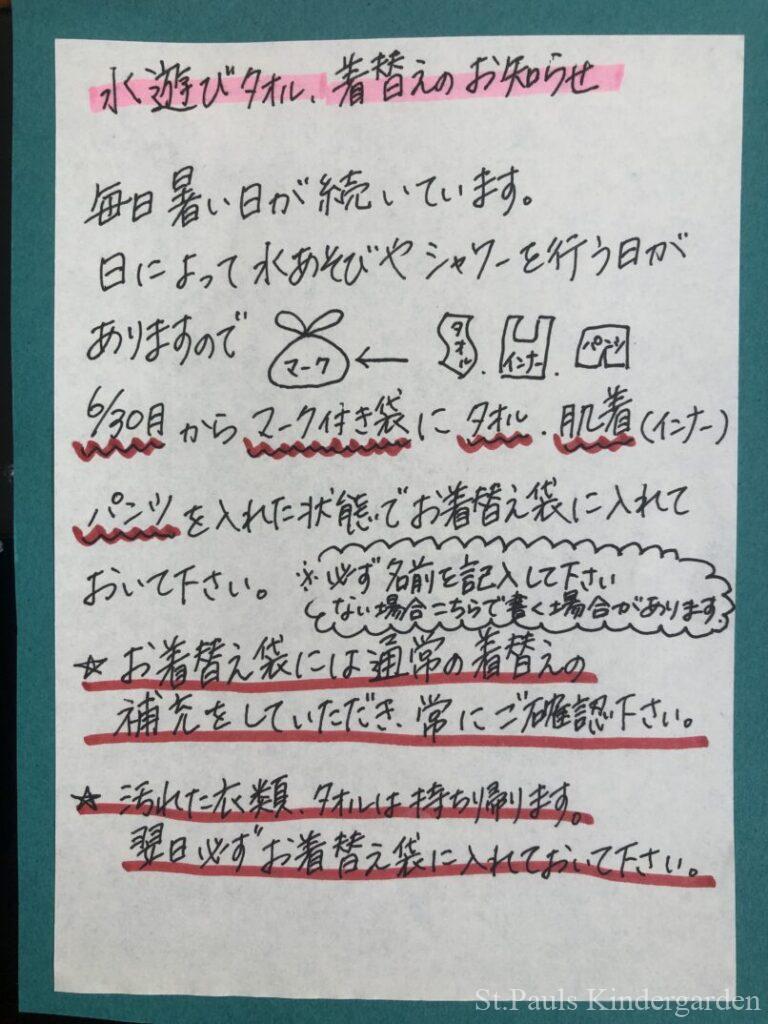 水遊びタオル、着替えのお知らせ
毎日暑い日が続いています。
日によって水あそびやシャワーを行う日が
ありますので
マーク
タオル
インナー
パンツ
6/30月からマーク付き袋にタオル・肌着(インナー)
パンツを入れた状態でお着替え袋に入れて
おいて下さい。
※必ず名前を記入して下さい
ない場合こちらで書く場合があります。
☆お着替え袋には通常の着替えの
補充をしていただき、常にご確認下さい。
☆汚れた衣類、タオルは持ち帰ります。
翌日必ずお着替え袋に入れておいて下さい。
St.Pauls Kindergarden